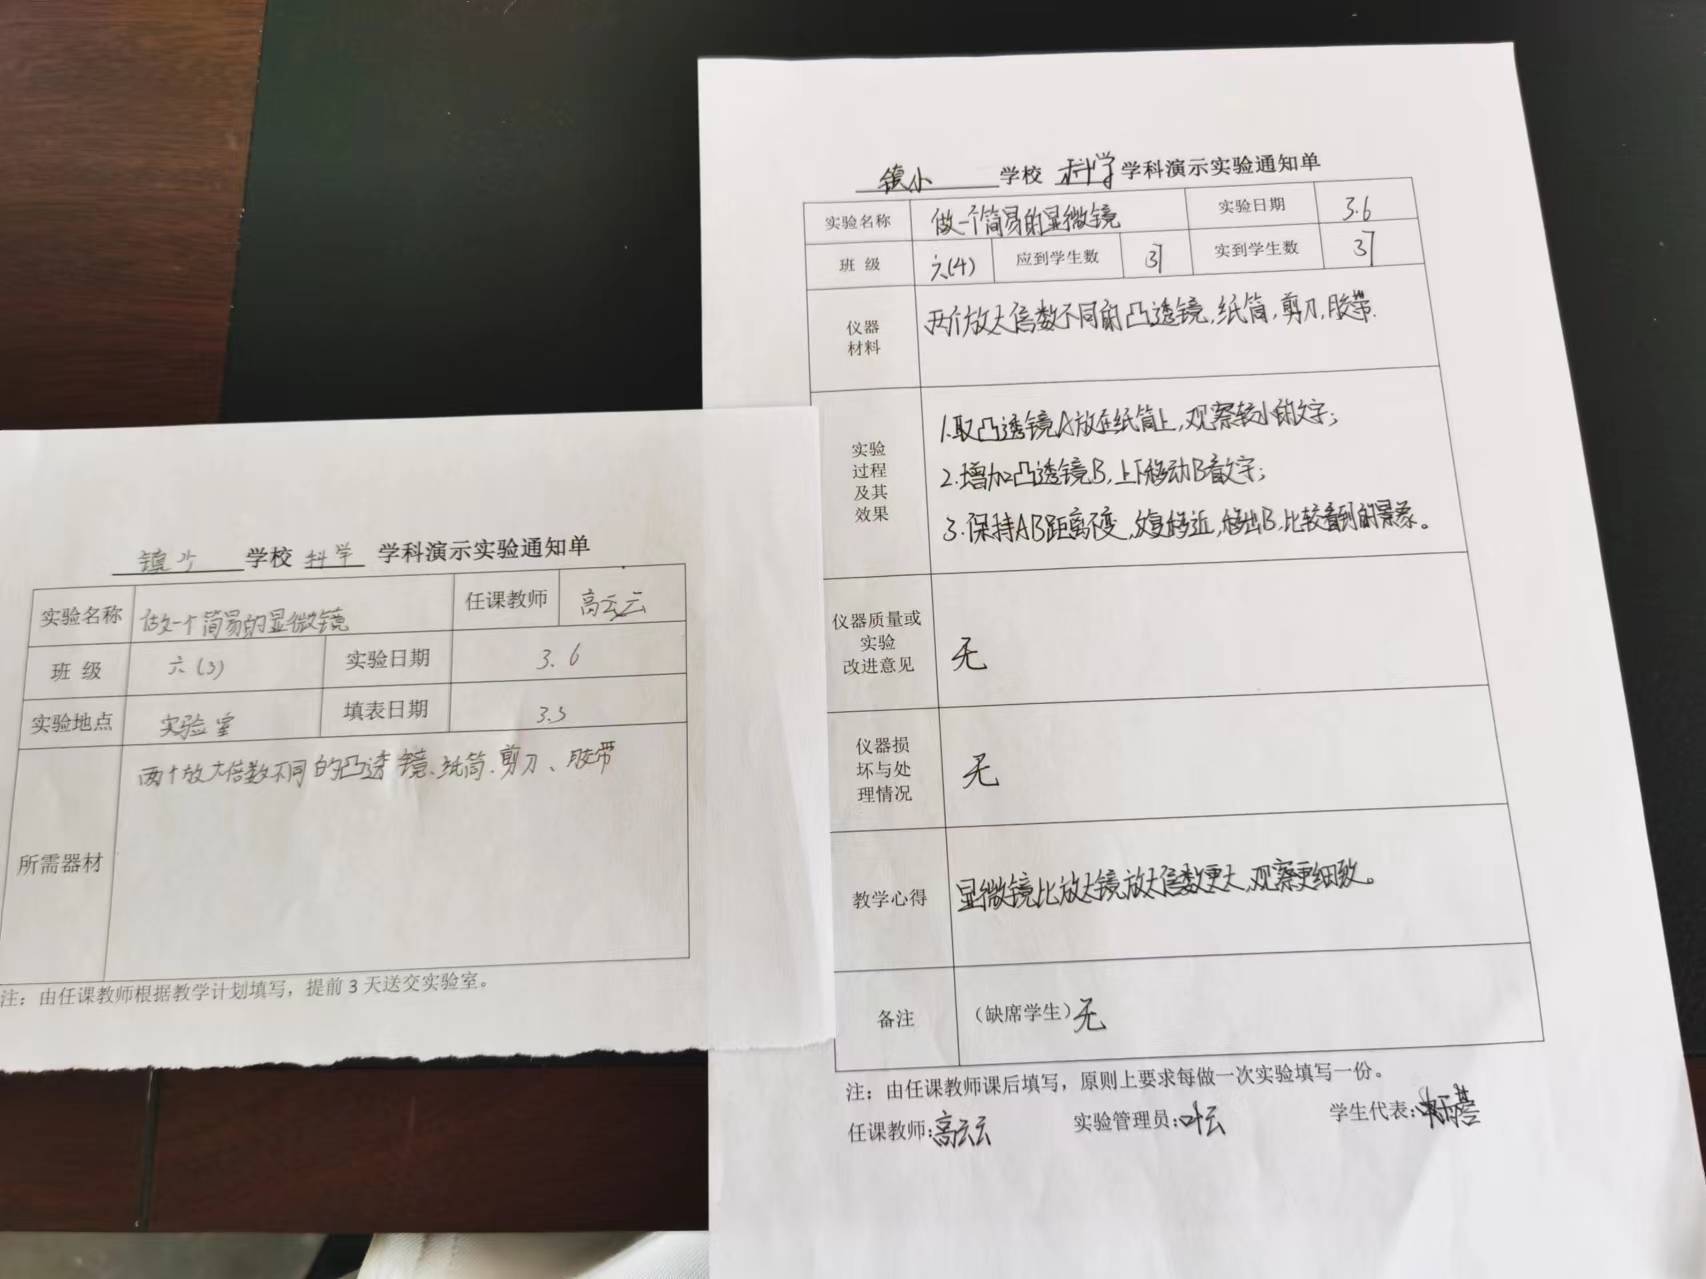 镇小 学校 科学 学科演示实验通知单
实验名称 做一个简易的显微镜 任课教师 高云云
班 级 六(3) 实验日期 3.6
实验地点 实验室 填表日期 3.5
所需器材 两个放大倍数不同的凸透镜、纸筒、剪刀、胶带
注：由任课教师根据教学计划填写，提前 3 天送交实验室。
镇小 学校 科学 学科演示实验通知单
实验名称 做一个简易的显微镜 实验日期 3.6
班 级 六(4) 应到学生数 37 实到学生数 37
仪器
材料
两个放大倍数不同的凸透镜,纸筒,剪刀,胶带.
实验
过程
及其
效果
1.取凸透镜A放在纸筒上,观察较小的文字;
2.增加凸透镜B,上下移动B看文字;
3.保持AB距离不变,反复移近,移出B,比较看到的景象。
仪器质量或
实验
改进意见
无
仪器损
坏与处
理情况
无
教学心得 显微镜比放大镜放大倍数更大,观察更细致。
备注 （缺席学生）无
注：由任课教师课后填写，原则上要求每做一次实验填写一份。
任课教师:高云云 实验管理员:叶云 学生代表: